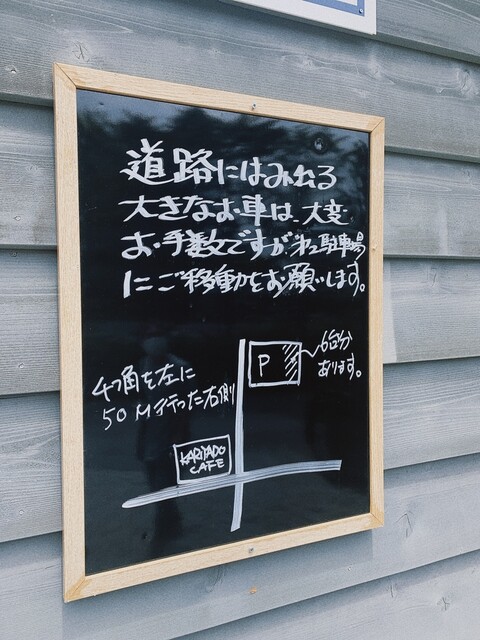 道路にはみ出る
大きなお車は、大変
お手数ですが第2駐車場
にご移動をお願いします。
P
6台分
あります。
4つ角を左に
50M行った右側
KARIYADO
CAFE